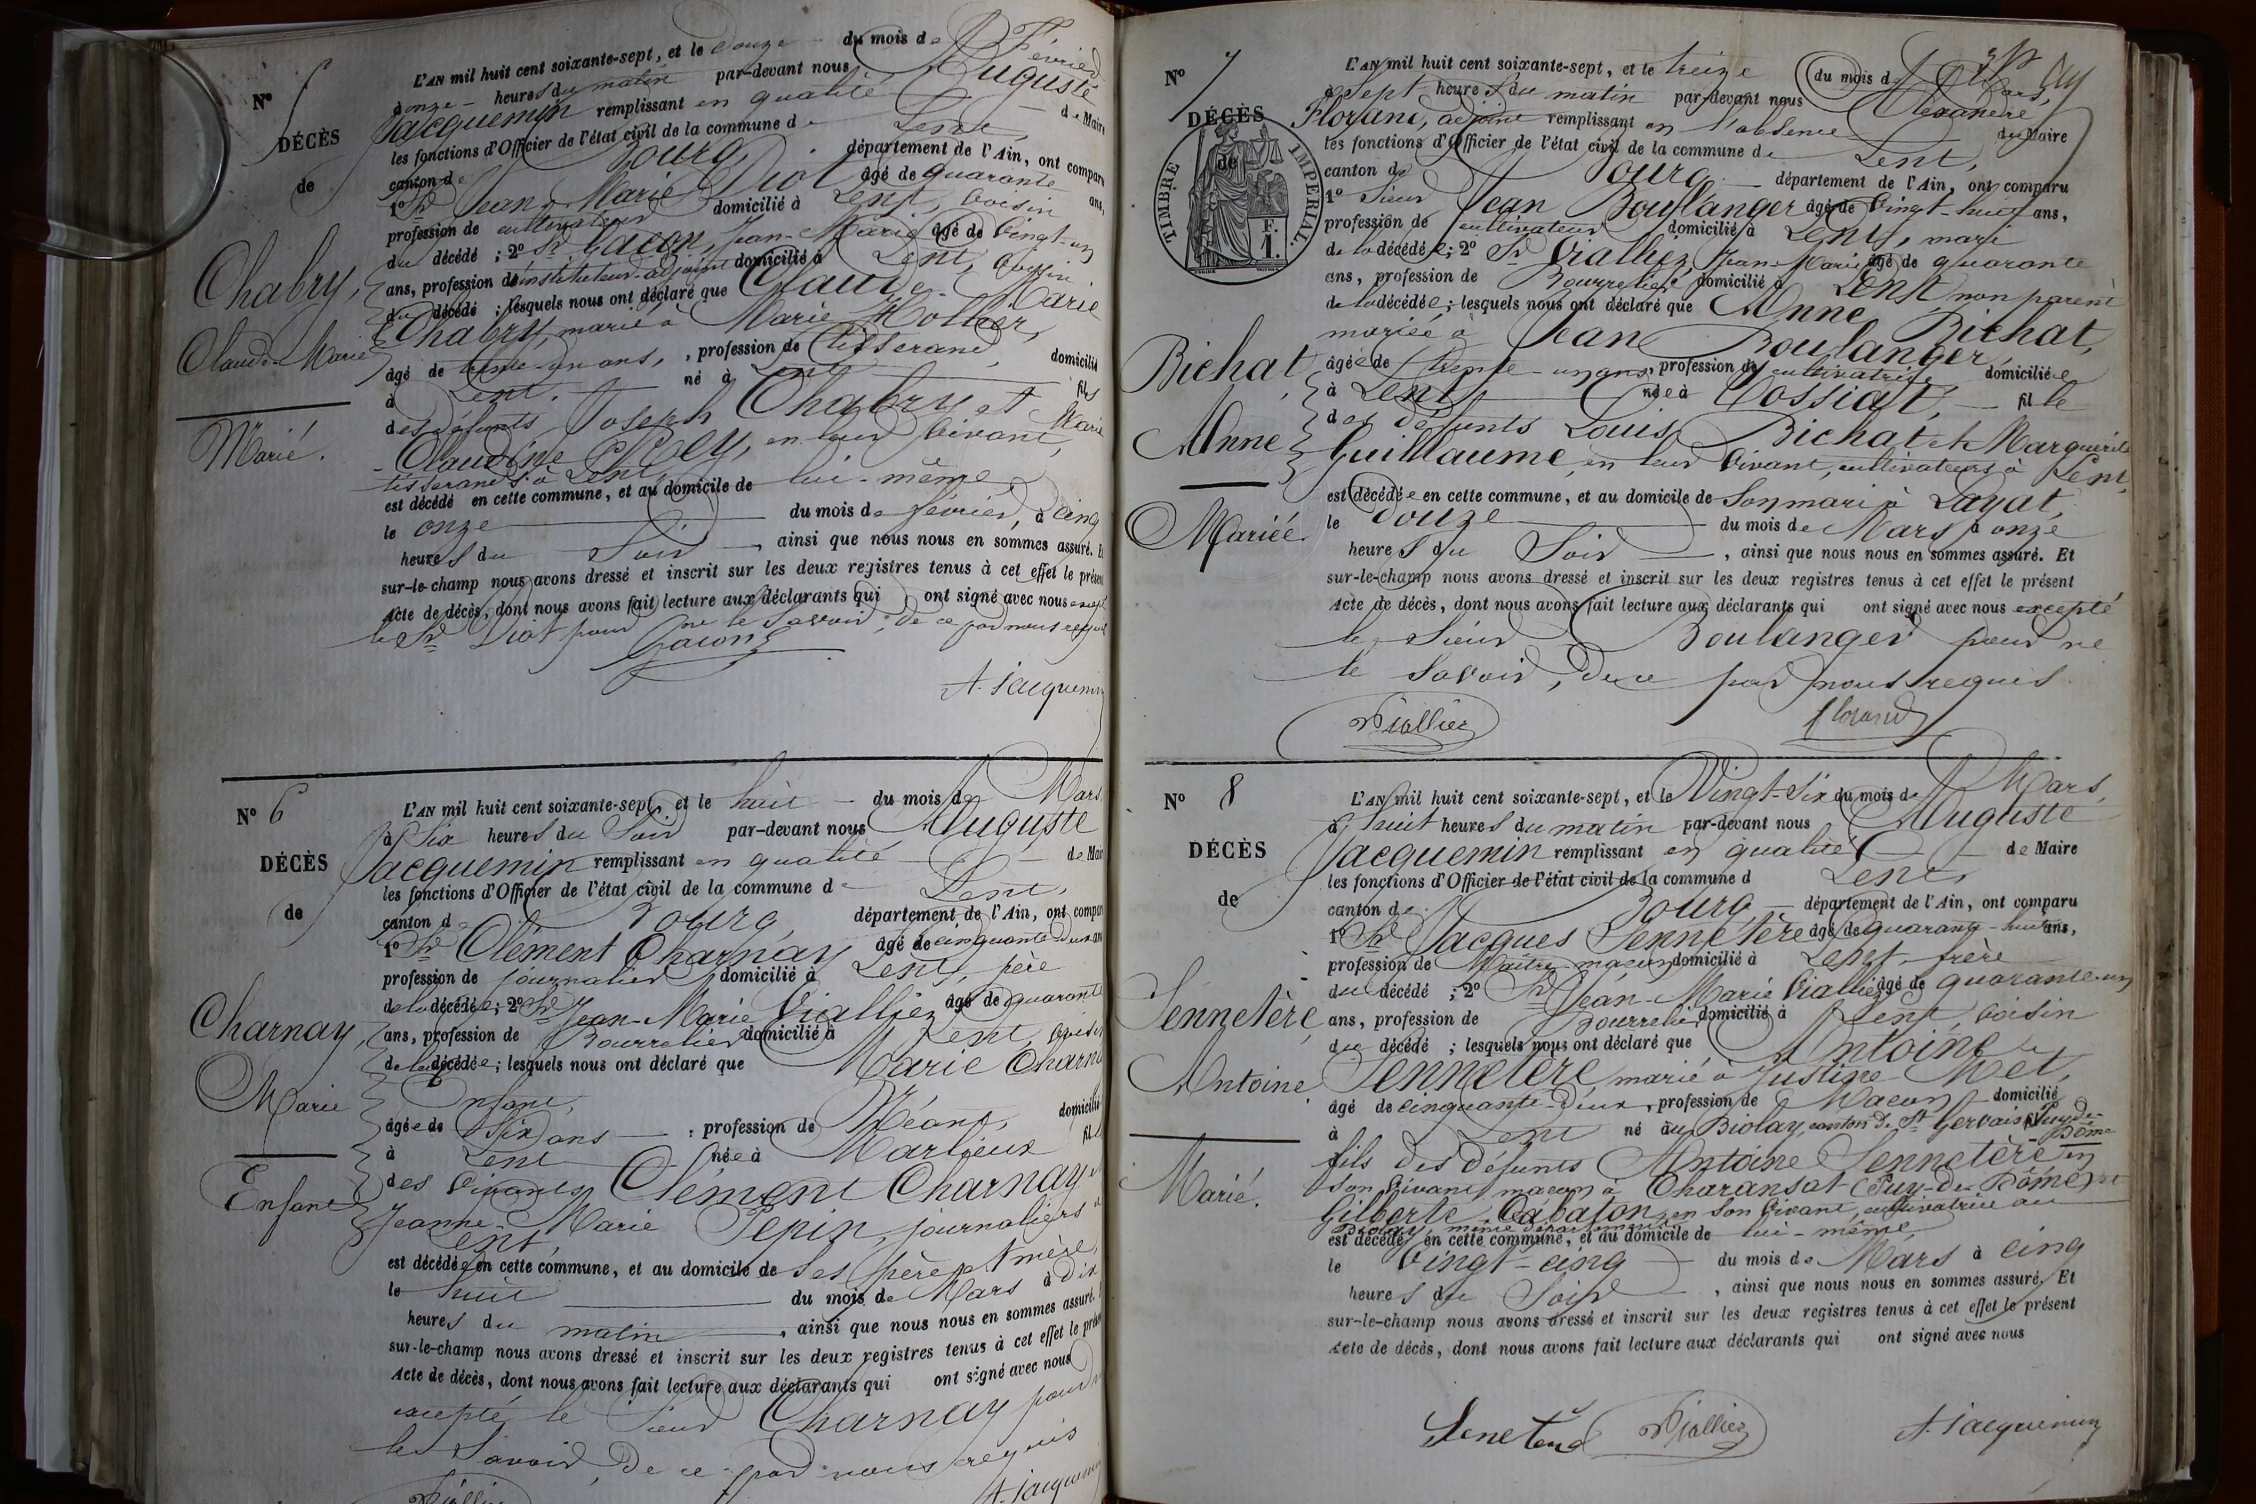 N° 5
DÉCÈS
de
Chabry,
Claude-Marie
Marié.
L'AN mil huit cent soixante-sept, et le douze du mois de Février
à onze heures du matin par-devant nous Auguste
Jacquemin remplissant en qualité de Maire
les fonctions d'Officier de l'état civil de la commune de Lent,
canton de Bourg, département de l'Ain, ont comparu
1° Sr Jean Marie Diot âgé de quarante ans,
profession de cultivateur domicilié à Lent, voisin
du décédé ; 2° Sr Gacon, Jean-Marie âgé de vingt-un
ans, profession d'instituteur-adjoint domicilié à Lent, voisin
du décédé ; lesquels nous ont déclaré que Claude Marie
Chabry, marié à Marie
âgé de trente-un ans, profession de tisserand, domicilié
à Lent, né à Lent fils
des défunts Joseph Chabry et Marie
Claudine en leur vivant,
tisserands à Lent
est décédé en cette commune, et au domicile de lui-même
le onze du mois de février, à cinq
heures du Soir, ainsi que nous nous en sommes assuré. Et
sur-le-champ nous avons dressé et inscrit sur les deux registres tenus à cet effet le présent
Acte de décès, dont nous avons fait lecture aux déclarants qui ont signé avec nous excepté
le Sr Diot pour ne le savoir, de ce par nous requis
Gacon
A. Jacquemin
N° 6
DÉCÈS
de
Charnay,
Marie
Enfant
L'AN mil huit cent soixante-sept, et le huit du mois de Mars
à Six heures du Soir par-devant nous Auguste
Jacquemin remplissant en qualité de Maire
les fonctions d'Officier de l'état civil de la commune de Lent,
canton de Bourg, département de l'Ain, ont comparu
1° Sr Clément Charnay âgé de cinquante deux ans
profession de journalier domicilié à Lent, père
de la décédée ; 2° Sr Jean-Marie Vialliez âgé de quarante
ans, profession de Bourrelier domicilié à Lent, voisin
de la décédée ; lesquels nous ont déclaré que Marie Charnay
Enfant,
âgée de Six ans, profession de Néant, domiciliée
à Lent née à Marlieux fille
des vivants Clément Charnay et
Jeanne-Marie Pepin, journaliers à
Lent,
est décédée en cette commune, et au domicile de ses père et mère,
le huit du mois de Mars à dix
heures du matin, ainsi que nous nous en sommes assuré. Et
sur-le-champ nous avons dressé et inscrit sur les deux registres tenus à cet effet le présent
Acte de décès, dont nous avons fait lecture aux déclarants qui ont signé avec nous
excepté le Sieur Charnay pour ne
le Savoir, de ce par nous requis
Vialliez
A. Jacquemin
N° 7
DÉCÈS
de
TIMBRE IMPERIAL.
F.
1.
Bichat,
Anne
Mariée
L'AN mil huit cent soixante-sept, et le treize du mois de Mars,
à Sept heures du matin par-devant nous Alexandre
Florand, adjoint remplissant en l'absence du Maire
les fonctions d'Officier de l'état civil de la commune de Lent,
canton de Bourg département de l'Ain, ont comparu
1° Sieur Jean Boulanger âgé de vingt-huit ans,
profession de cultivateur domicilié à Lent, mari
de la décédée ; 2° Sr Vialliez, Jean-Marie âgé de quarante
ans, profession de Bourrelier domicilié à Lent, non parent
de la décédée ; lesquels nous ont déclaré que Anne Bichat,
mariée à Jean Boulanger,
âgée de trente-un ans, profession de cultivatrice domiciliée
à Lent née à Cossiat, fille
des défunts Louis Bichat et Marguerite
Guillaume, en leur vivant, cultivateurs à Lent,
est décédée en cette commune, et au domicile de Son mari à Layat,
le douze du mois de Mars à onze
heures du Soir, ainsi que nous nous en sommes assuré. Et
sur-le-champ nous avons dressé et inscrit sur les deux registres tenus à cet effet le présent
Acte de décès, dont nous avons fait lecture aux déclarants qui ont signé avec nous excepté
le Sieur Boulanger pour ne
le Savoir, de ce par nous requis.
Vialliez
Florand
N° 8
DÉCÈS
de
Sennetère
Antoine
Marié.
L'AN mil huit cent soixante-sept, et le Vingt-Six du mois de Mars,
à huit heures du matin par-devant nous Auguste
Jacquemin remplissant en qualité de Maire
les fonctions d'Officier de l'état civil de la commune d Lent,
canton de Bourg, département de l'Ain, ont comparu
1° Sr Jacques Sennetère âgé de quarante-huit ans,
profession de Maître-maçon domicilié à Lent, frère
du décédé ; 2° Sr Jean-Marie Vialliez âgé de quarante-un
ans, profession de Bourrelier domicilié à Lent, voisin
du décédé ; lesquels nous ont déclaré que Antoine
Sennetère marié à Justine Met,
âgé de cinquante-deux, profession de Maçon domicilié
à Lent né au Biolay, canton de St Gervais (Puy-de-Dôme
fils des défunts Antoine Sennetère en
son vivant maçon à Charansat (Puy-de-Dôme) et
Gilberte Cabason, en son vivant, cultivatrice au
Biolay, même département
est décédé en cette commune, et au domicile de lui-même
le vingt-cinq du mois de Mars à cinq
heures du Soir, ainsi que nous nous en sommes assuré. Et
sur-le-champ nous avons dressé et inscrit sur les deux registres tenus à cet effet le présent
Acte de décès, dont nous avons fait lecture aux déclarants qui ont signé avec nous
Vialliez
A. Jacquemin